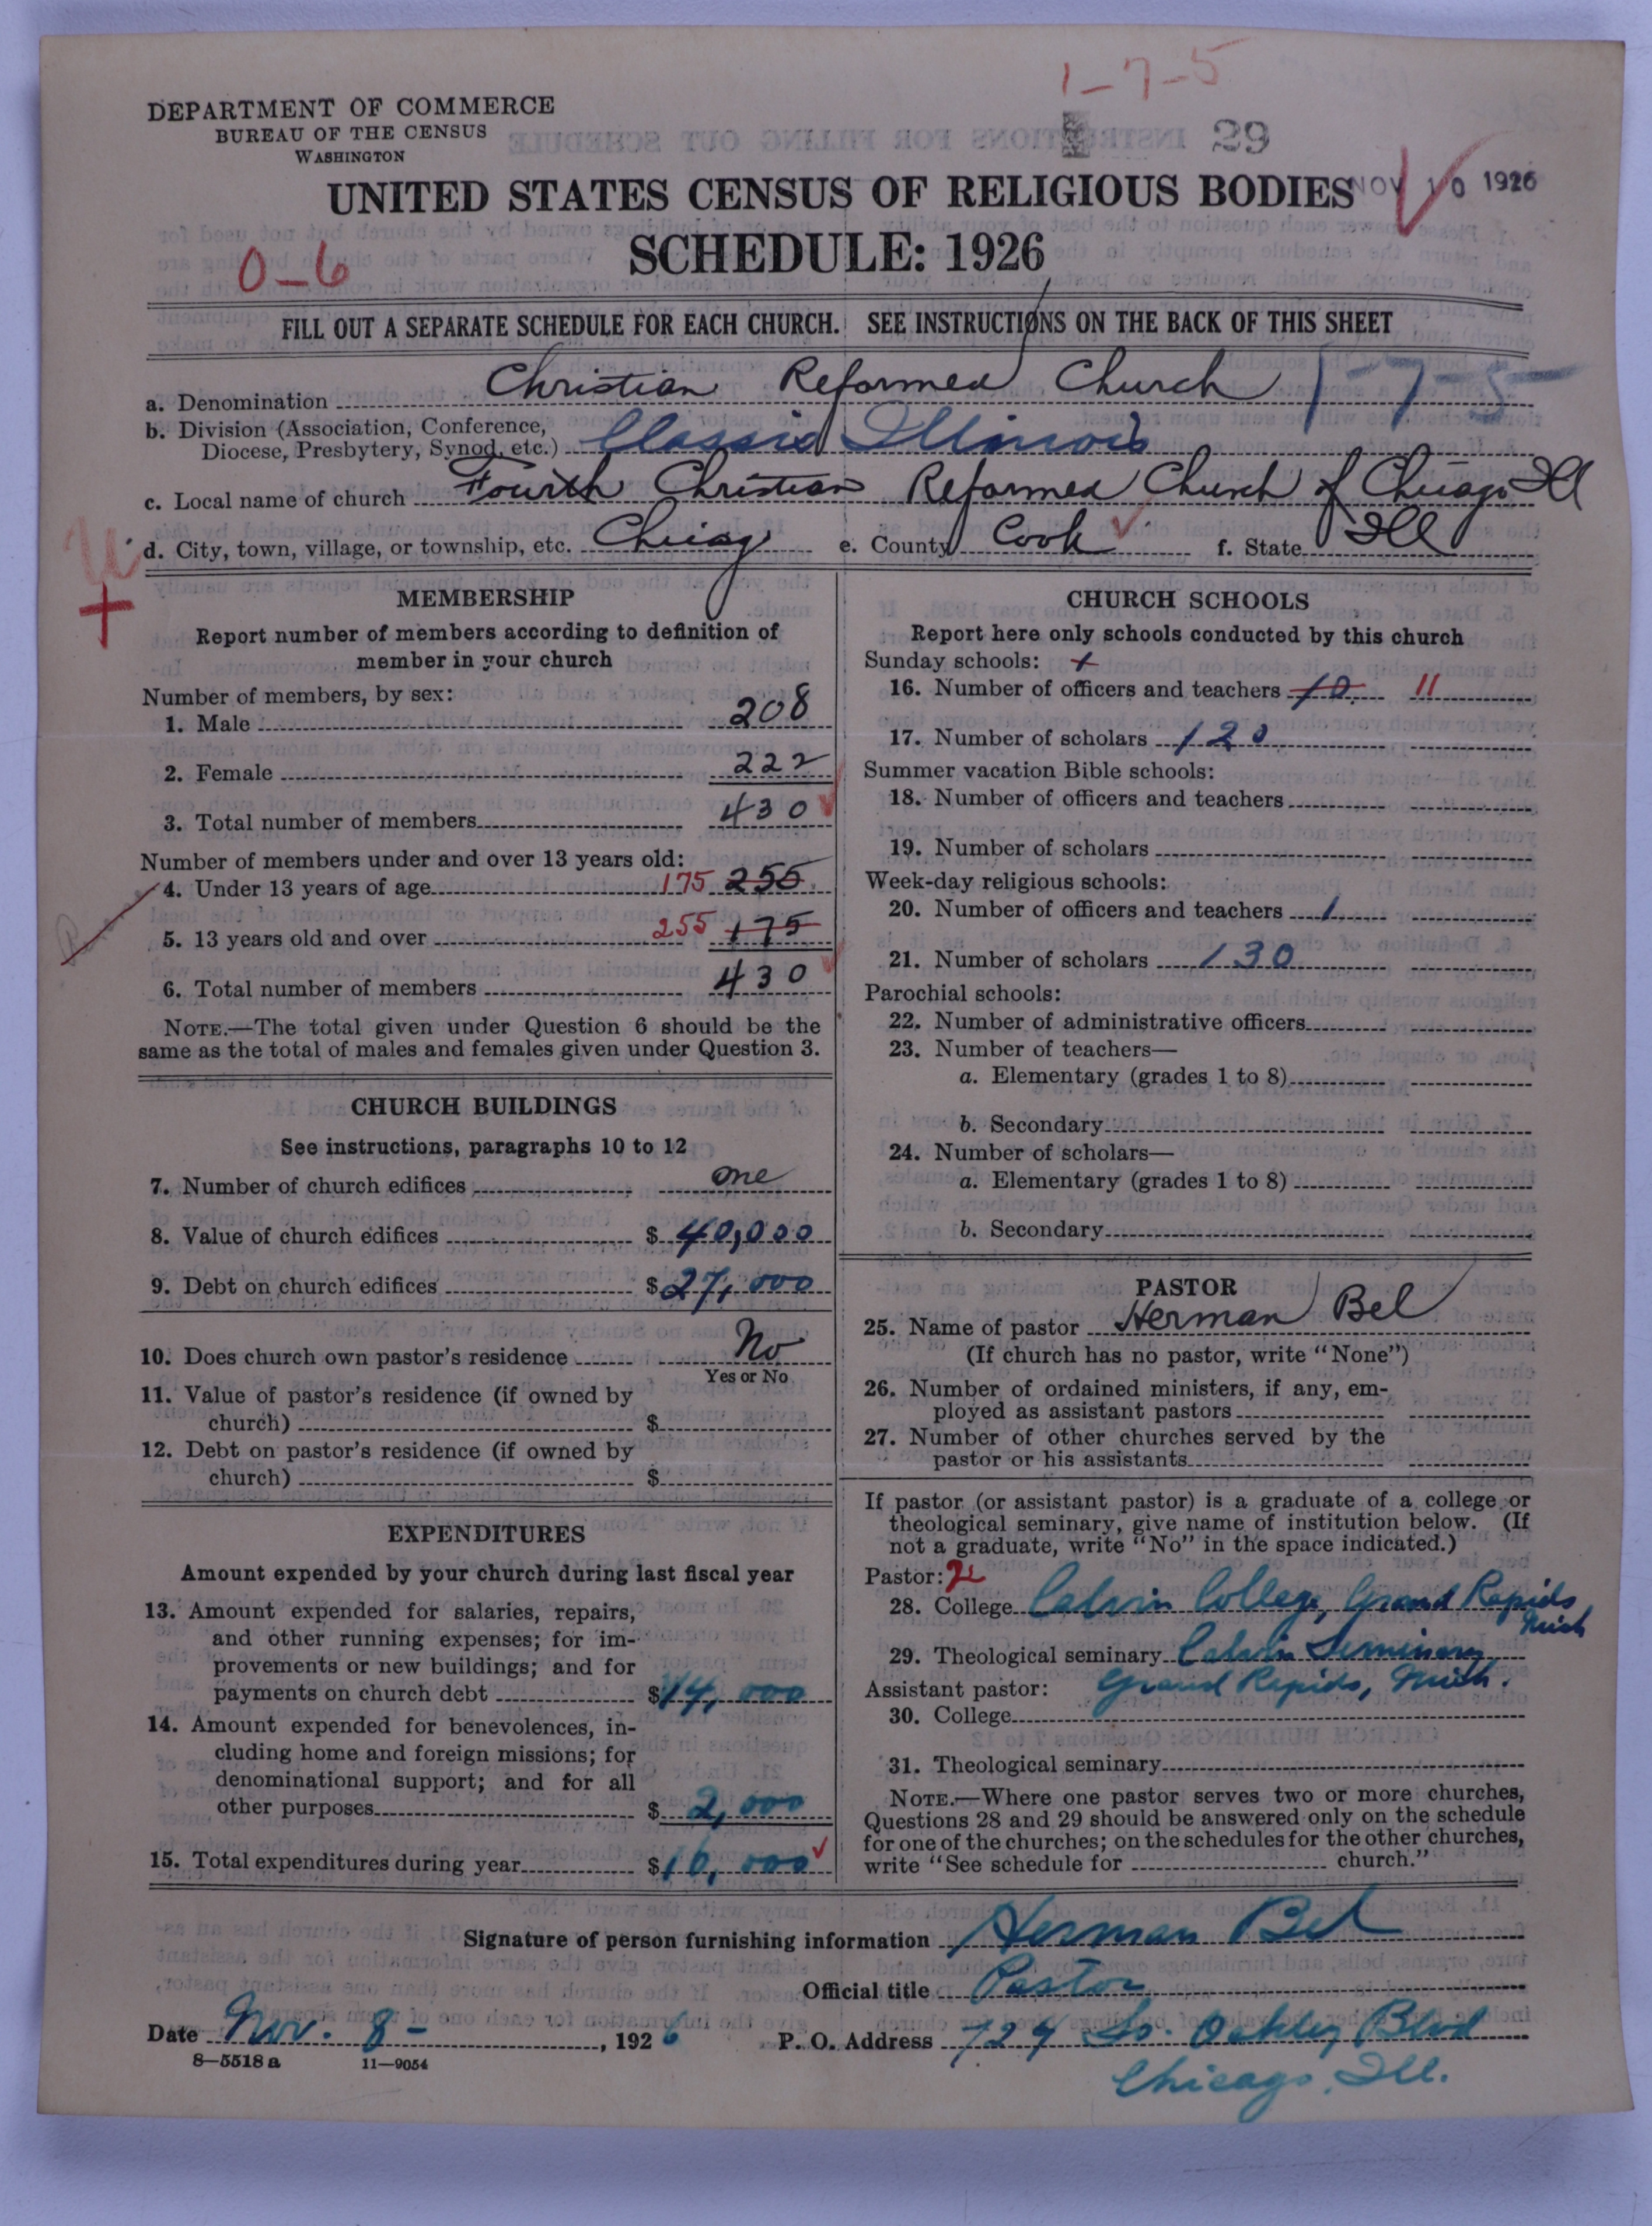 1-7-5
DEPARTMENT OF COMMERCE
BUREAU OF THE CENSUS
WASHINGTON
29
UNITED STATES CENSUS OF RELIGIOUS BODIES
NOV 10 1926
SCHEDULE: 1926
0-6
FILL OUT A SEPARATE SCHEDULE FOR EACH CHURCH. SEE INSTRUCTIONS ON THE BACK OF THIS SHEET
a. Denomination Christian Reformed Church 1-7-5
b. Division (Association, Conference,
Diocese, Presbytery, Synod, etc.) Classis Illinois
c. Local name of church Fourth Christian Reformed Church of Chicago Ill
d. City, town, village, or township, etc. Chicag e. County Cook f. State Ill
MEMBERSHIP
Report number of members according to definition of
member in your church
Number of members, by sex:
1. Male 208
2. Female 222
3. Total number of members 430
Number of members under and over 13 years old:
4. Under 13 years of age 175 255
5. 13 years old and over 255 175
6. Total number of members 430
NOTE.—The total given under Question 6 should be the
same as the total of males and females given under Question 3.
CHURCH BUILDINGS
See instructions, paragraphs 10 to 12
7. Number of church edifices one
8. Value of church edifices $ 40,000
9. Debt on church edifices $ 27,000
10. Does church own pastor's residence No
Yes or No
11. Value of pastor's residence (if owned by
church) $
12. Debt on pastor's residence (if owned by
church) $
EXPENDITURES
Amount expended by your church during last fiscal year
13. Amount expended for salaries, repairs,
and other running expenses; for im-
provements or new buildings; and for
payments on church debt $ 14,000
14. Amount expended for benevolences, in-
cluding home and foreign missions; for
denominational support; and for all
other purposes $ 2,000
15. Total expenditures during year $ 16,000
CHURCH SCHOOLS
Report here only schools conducted by this church
Sunday schools: +
16. Number of officers and teachers 10 11
17. Number of scholars 120
Summer vacation Bible schools:
18. Number of officers and teachers
19. Number of scholars
Week-day religious schools:
20. Number of officers and teachers 1
21. Number of scholars 130
Parochial schools:
22. Number of administrative officers
23. Number of teachers—
a. Elementary (grades 1 to 8)
b. Secondary
24. Number of scholars—
a. Elementary (grades 1 to 8)
b. Secondary
PASTOR
25. Name of pastor Herman Bel
(If church has no pastor, write "None")
26. Number of ordained ministers, if any, em-
ployed as assistant pastors
27. Number of other churches served by the
pastor or his assistants
If pastor (or assistant pastor) is a graduate of a college or
theological seminary, give name of institution below. (If
not a graduate, write "No" in the space indicated.)
Pastor:
28. College Calvin College, Grand Rapids
Mich
29. Theological seminary Calvin Seminary
Assistant pastor: Grand Rapids, Mich.
30. College
31. Theological seminary
NOTE.—Where one pastor serves two or more churches,
Questions 28 and 29 should be answered only on the schedule
for one of the churches; on the schedules for the other churches,
write "See schedule for church."
Signature of person furnishing information Herman Bel
Official title Pastor
Date Nov. 8 -, 1926 P. O. Address 729 So. Oakley Blvd
8—5518 a 11—9054
Chicago, Ill.